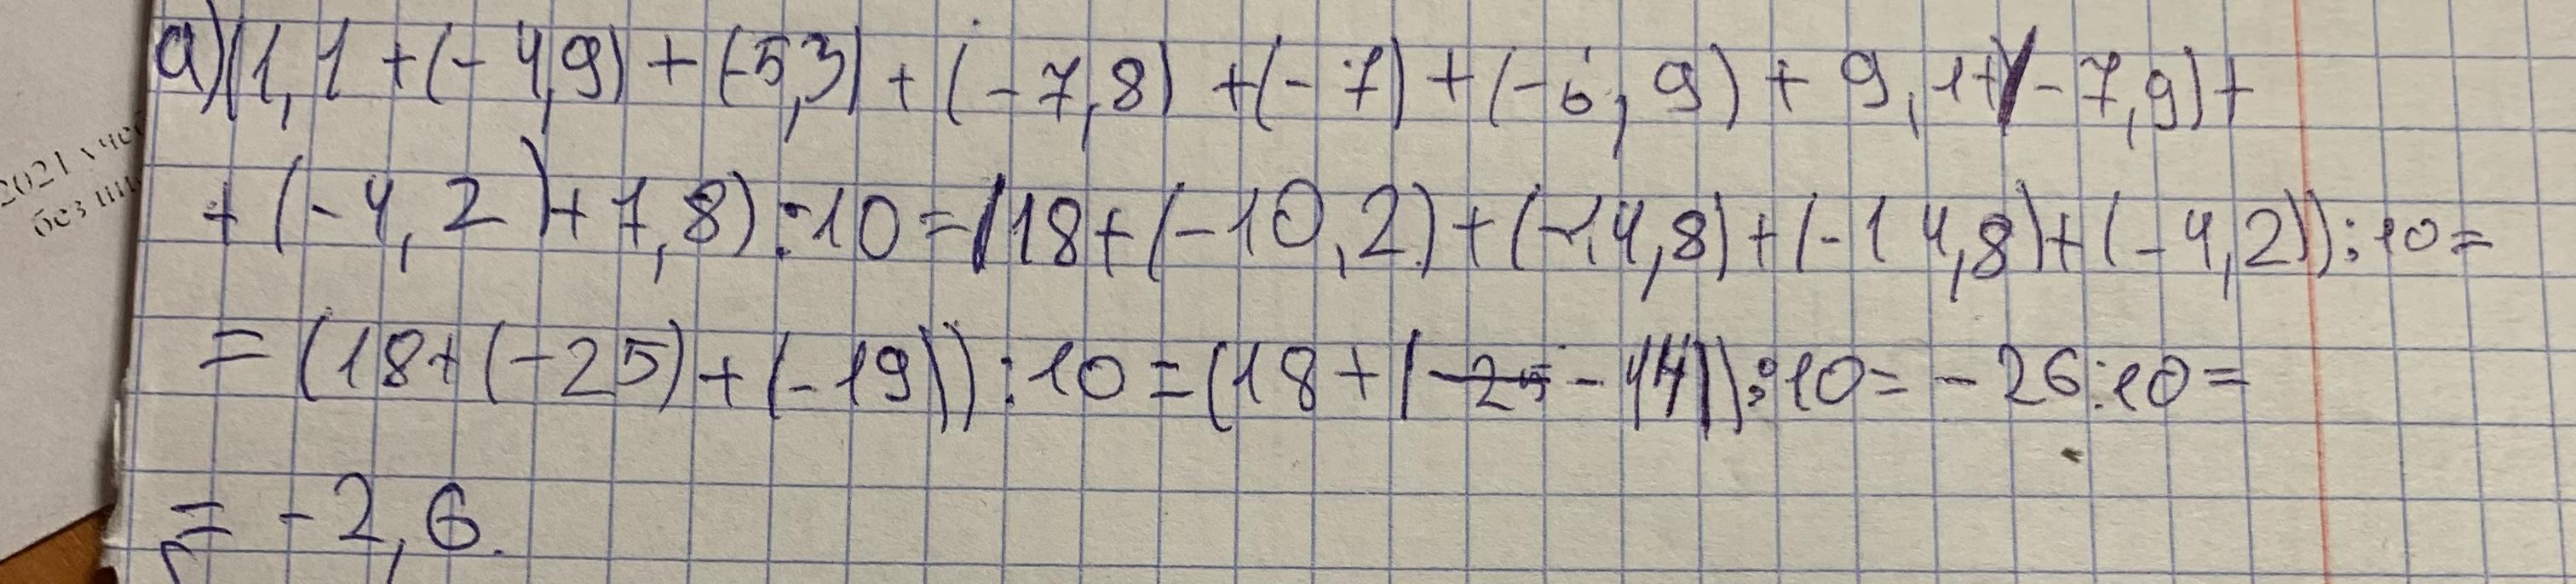 а)(1,1+(-4,9)+(-5,3)+(-7,8)+(-7)+(-6,9)+9,1+(-7,9)+
+(-4,2)+7,8):10=(18+(-10,2)+(-14,8)+(-14,8)+(-4,2)):10=
=(18+(-25)+(-19)):10=(18+(-44)):10=-26:10=
=-2,6.
2021
без